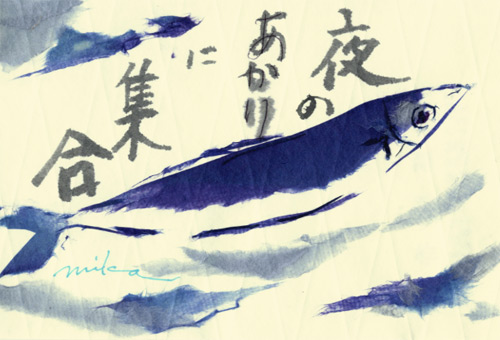 夜の
あかり
に
集
合
mika